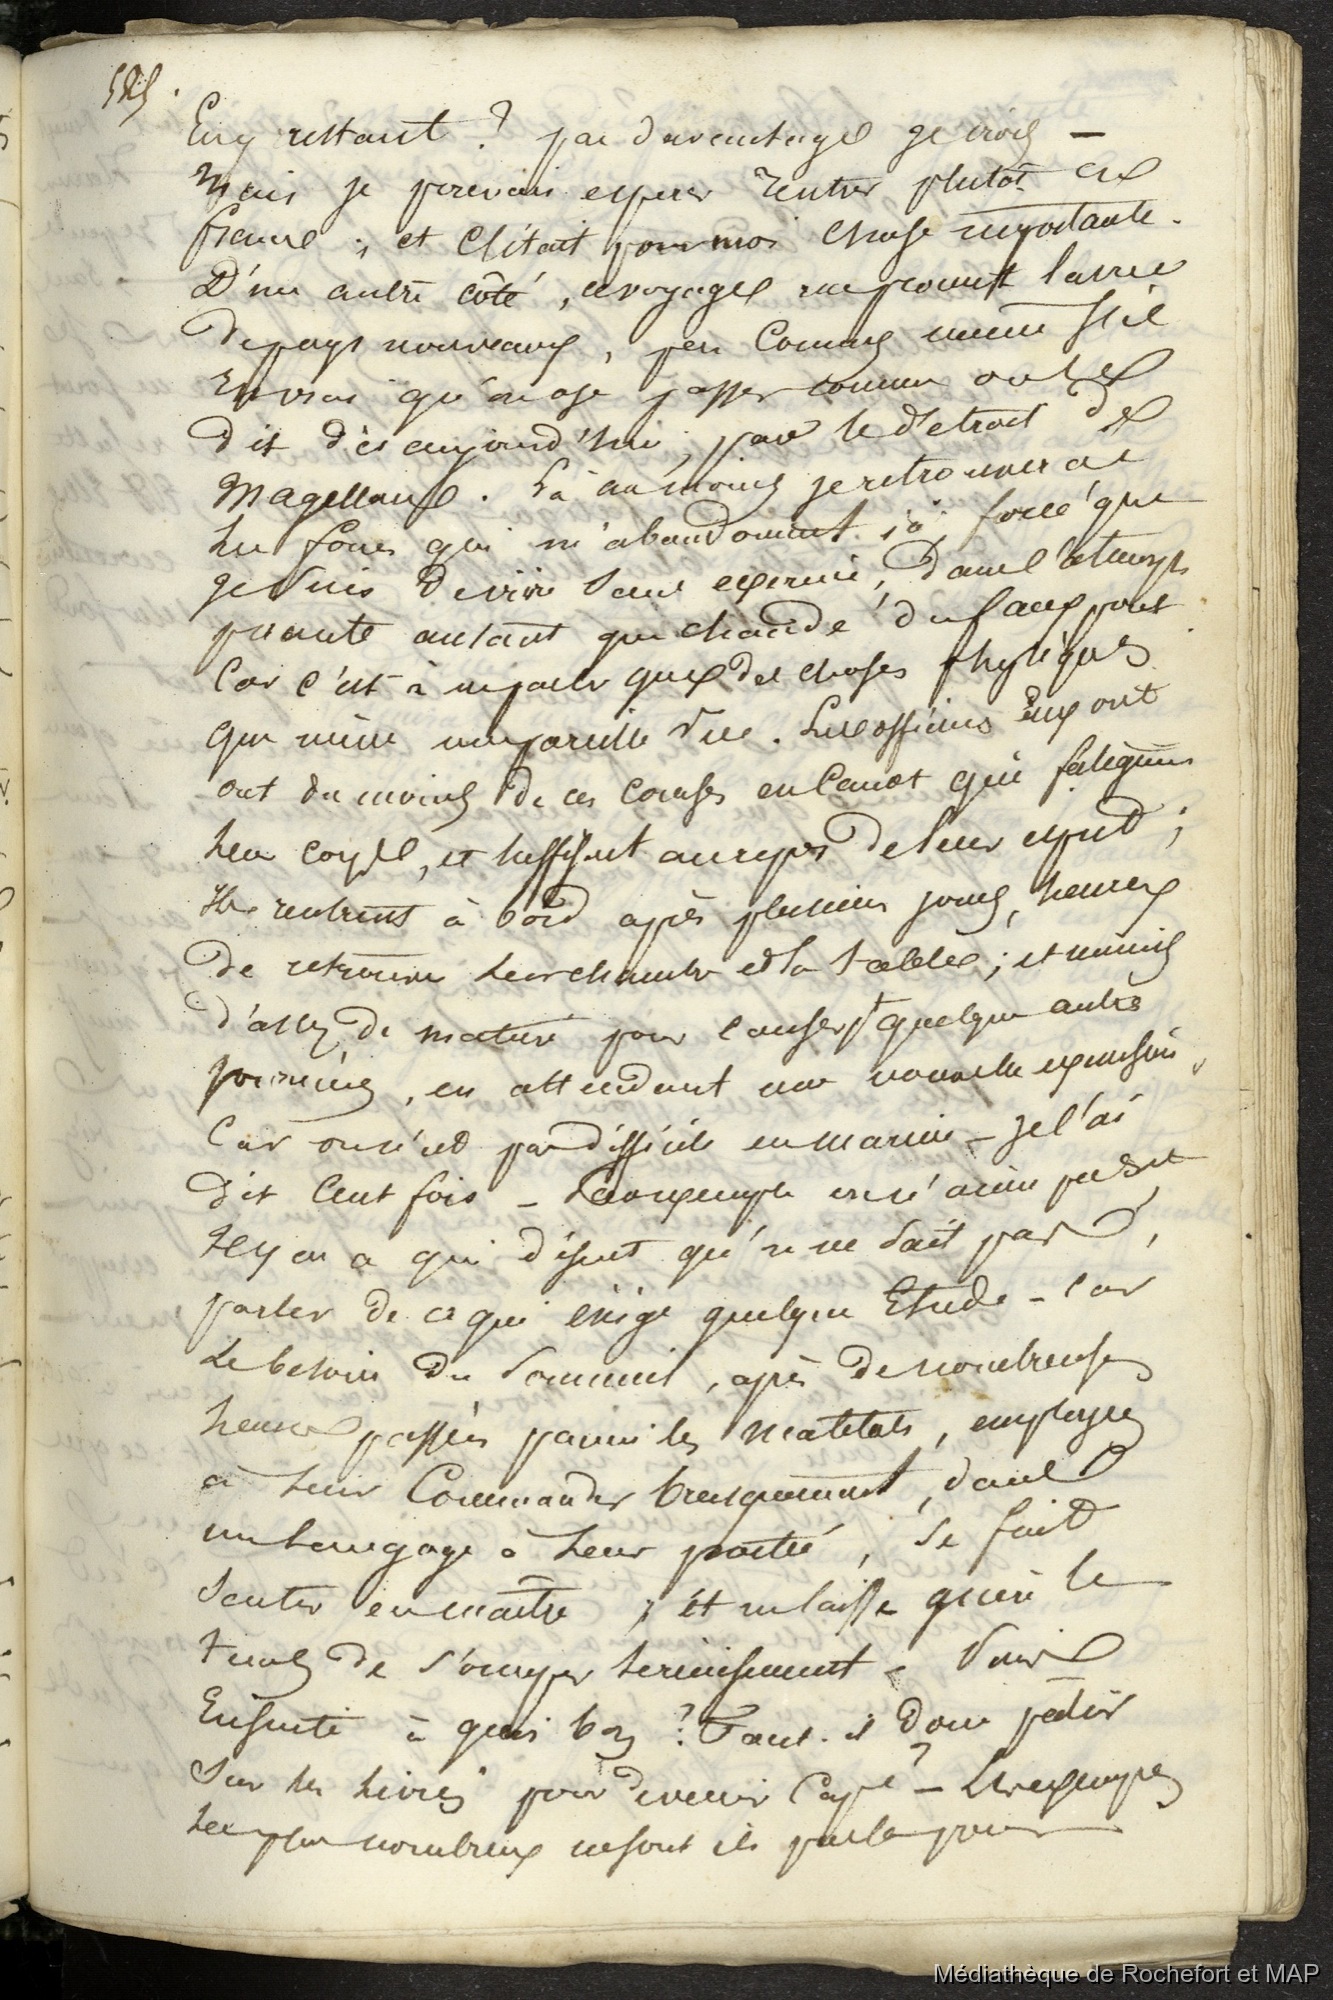 525.
En y restant ? pas davantage je crois —
Mais je pouvais esperer rentrer plutôt en
france ; et c'était pour moi chose importante.
D'un autre côté, ce voyage me promet la vue
de pays nouveaux, peu connus même s'il
est vrai qu'on ose passer comme on le
dit dès aujourd'hui, par le détroit de
Magellan. Là au moins je retrouverai
les forces qui m'abandonnent ici, forcé que
je suis de vivre sans exercice, dans l'atmosphère
puante autant que chaude du faux pont
Car c'est à ne parler que des choses physiques
que mène une pareille vie. Les officiers eux ont
ont du moins de ces courses en canot qui fatiguent
leur corps, et suffisent au repos de leur esprit ;
Ils rentrent à bord après plusieurs jours, heureux
de retrouver leur chambre et la table ; et munis
d'assez de matière pour causer quelques autres
journées, en attendant une nouvelle excursion,
Car on n'est pas difficile en marine — je l'ai
dit cent fois — par exemple on n'aime pas
Il y en a qui disent qu'on ne sait pas,
parler de ce qui exige quelque Etude — car
Le besoin du sommeil, après de nombreuses
heures passées parmi les matelots, employées
à leur Commander brusquement, dans
un langage à leur portée, se fait
sentir en maître ; et ne laisse guère le
tems de s'occuper serieusement — Puis
Ensuite à quoi bon ? Faut-il donc pâlir
Sur les livres pour devenir Cap.e ? — Les exemples
les plus nombreux ne sont ils pas la pour
Médiathèque de Rochefort et MAP